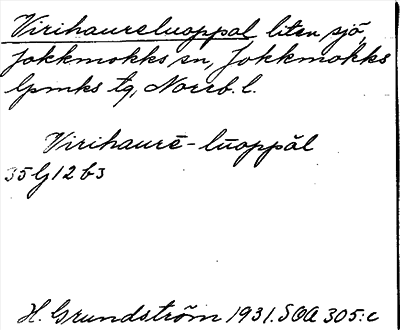 Virihaureluoppal liten sjö,
Jokkmokks sn, Jokkmokks
lpmks tg, Norrb. l.
Virihaurē-lūoppăl
35G12b3
H. Grundström 1931. SOA 305:c